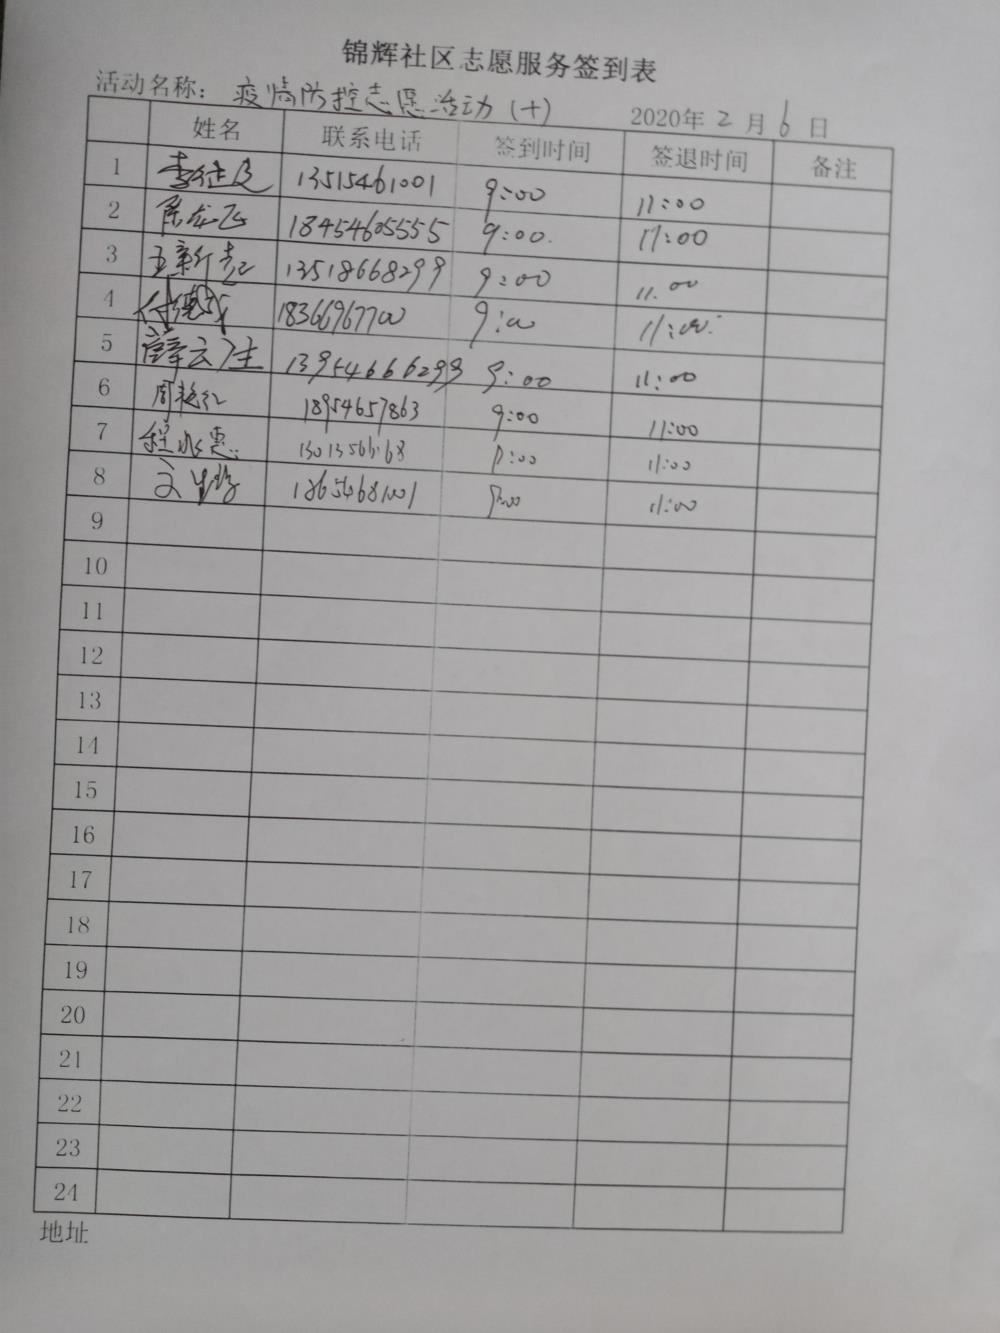 锦辉社区志愿服务签到表
活动名称：疫情防控志愿活动（十） 2020年2月6日
姓名 联系电话 签到时间 签退时间 备注
1 13515461001 9:00 11:00
2 18454605555 9:00. 11:00
3 王新志 13518668299 9:00 11.00
4 付德成 18366967700 9:00 11:00
5 薛云生 13954666299 9:00 11:00
6 周艳红 18954657863 9:00 11:00
7 程永惠 9:00 11:00
8 18654681001 9:00 11:00
9
10
11
12
13
14
15
16
17
18
19
20
21
22
23
24
地址